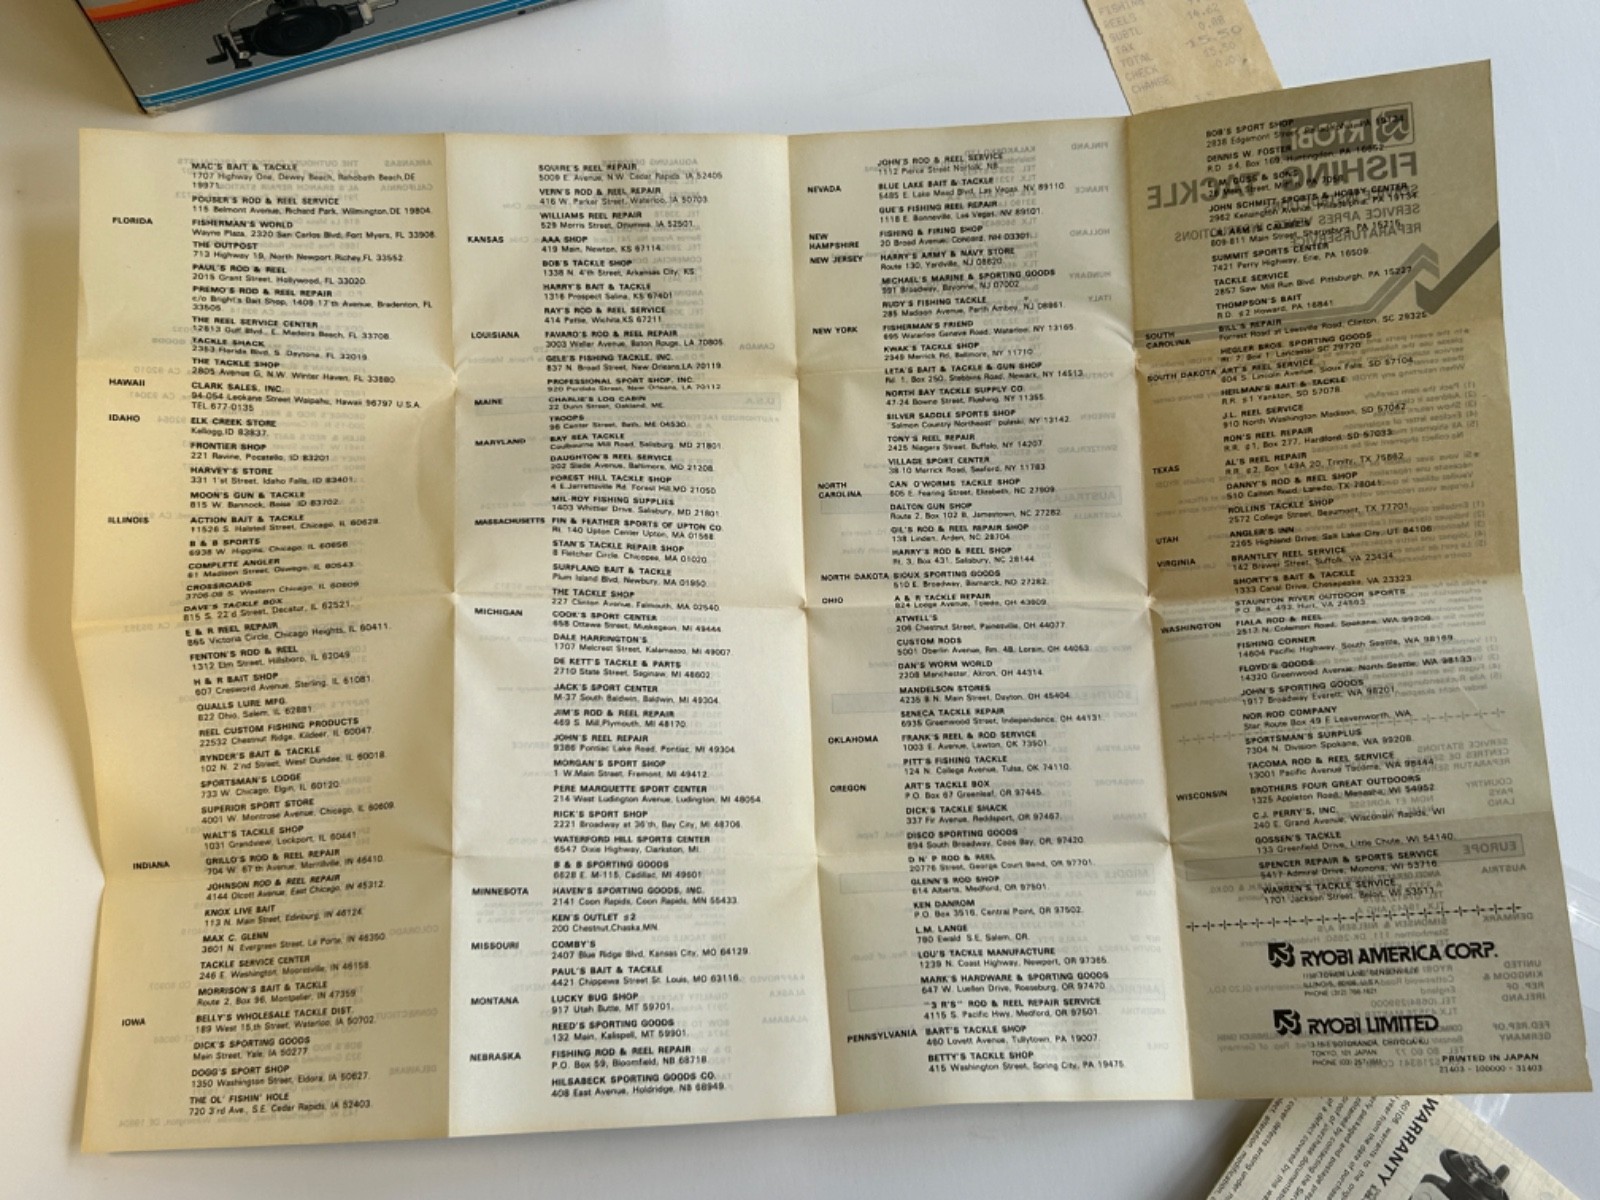 MAC'S BAIT & TACKLE
1707 Highway One, Dewey Beach, Rehobeth Beach, DE
19971
POUSER'S ROD & REEL SERVICE
115 Belmont Avenue, Richard Park, Wilmington, DE 19804
FLORIDA
FISHERMAN'S WORLD
Wayne Plaza, 2320 San Carlos Blvd, Fort Myers, FL 33908
THE OUTPOST
713 Highway 19, North Newport Richey, FL 33552
PAUL'S ROD & REEL
2015 Grant Street, Hollywood, FL 33020
PREMO'S ROD & REEL REPAIR
c/o Bright's Bait Shop, 1409 17'th Avenue, Bradenton, FL
33505
THE REEL SERVICE CENTER
12813 Gulf Blvd., E. Madeira Beach, FL 33708
TACKLE SHACK
2353 Florida Blvd, S. Daytona, FL 32019
THE TACKLE SHOP
2805 Avenue G, N.W. Winter Haven, FL 33880
HAWAII
CLARK SALES, INC.
94-054 Leokane Street Waipahu, Hawaii 96797 U.S.A.
TEL 677-0135
IDAHO
ELK CREEK STORE
Kellogg, ID 83837
FRONTIER SHOP
221 Ravine, Pocatello, ID 83201
HARVEY'S STORE
331 1'st Street, Idaho Falls, ID 83401
MOON'S GUN & TACKLE
815 W. Bannock, Boise ID 83702
ILLINOIS
ACTION BAIT & TACKLE
11526 S. Halsted Street, Chicago, IL 60628
B & B SPORTS
6938 W. Higgins, Chicago, IL 60656
COMPLETE ANGLER
81 Madison Street, Oswego, IL 60543
CROSSROADS
3706-08 S. Western Chicago, IL 60609
DAVE'S TACKLE BOX
815 S. 22'd Street, Decatur, IL 62521
E & R REEL REPAIR
865 Victoria Circle, Chicago Heights, IL 60411
FENTON'S ROD & REEL
1312 Elm Street, Hillsboro, IL 62049
H & R BAIT SHOP
607 Cresword Avenue, Sterling, IL 61081
QUALLS LURE MFG.
822 Ohio, Salem, IL 62881
REEL CUSTOM FISHING PRODUCTS
22532 Chestnut Ridge, Kildeer, IL 60047
RYNDER'S BAIT & TACKLE
102 N. 2'nd Street, West Dundee, IL 60018
SPORTSMAN'S LODGE
733 W. Chicago, Elgin, IL 60120
SUPERIOR SPORT STORE
4001 W. Montrose Avenue, Chicago, IL 60609
WALT'S TACKLE SHOP
1031 Grandview, Lockport, IL 60441
INDIANA
GRILLO'S ROD & REEL REPAIR
704 W. 67'th Avenue, Morrillville, IN 46410
JOHNSON ROD & REEL REPAIR
4144 Olcott Avenue, East Chicago, IN 45312
KNOX LIVE BAIT
113 N. Main Street, Edinburg, IN 46124
MAX C. GLENN
3601 N. Evergreen Street, La Porte, IN 46350
TACKLE SERVICE CENTER
246 E. Washington, Mooresville, IN 46158
MORRISON'S BAIT & TACKLE
Route 2, Box 96, Montpelier, IN 47359
IOWA
BELLY'S WHOLESALE TACKLE DIST.
189 West 15'th Street, Waterloo, IA 50702
DICK'S SPORTING GOODS
Main Street, Yale, IA 50277
DOGG'S SPORT SHOP
1350 Washington Street, Eldora, IA 50627
THE OL' FISHIN' HOLE
720 3'rd Ave., S.E. Cedar Rapids, IA 52403
SQUIRE'S REEL REPAIR
5009 E. Avenue, N.W. Cedar Rapids, IA 52405
VERN'S ROD & REEL REPAIR
416 W. Parker Street, Waterloo, IA 50703
WILLIAMS REEL REPAIR
529 Morris Street, Onumwa, IA 52501
KANSAS
AAA SHOP
419 Main, Newton, KS 67114
BOB'S TACKLE SHOP
1338 N. 4'th Street, Arkansas City, KS
HARRY'S BAIT & TACKLE
1316 Prospect Salina, KS 67401
RAY'S ROD & REEL SERVICE
414 Pattie, Wichita, KS 67211
LOUISIANA
FAVARO'S ROD & REEL REPAIR
3003 Waller Avenue, Baton Rouge, LA 70805
GELE'S FISHING TACKLE, INC.
837 N. Broad Street, New Orleans, LA 70119
PROFESSIONAL SPORT SHOP, INC.
920 Perdido Street, New Orleans, LA 70112
MAINE
CHARLIE'S LOG CABIN
22 Dunn Street, Oakland, ME.
TROOPS
96 Center Street, Bath, ME 04530
MARYLAND
BAY SEA TACKLE
Coulbourne Mill Road, Salisburg, MD 21801
DAUGHTON'S REEL SERVICE
202 Slade Avenue, Baltimore, MD 21208
FOREST HILL TACKLE SHOP
4 E. Jarrettsville Rd. Forest Hill, MD 21050
MIL-ROY FISHING SUPPLIES
1403 Whittier Drive, Salisbury, MD 21801
MASSACHUSETTS
FIN & FEATHER SPORTS OF UPTON CO.
Rt. 140 Upton Center Upton, MA 01568
STAN'S TACKLE REPAIR SHOP
8 Fletcher Circle, Chicopee, MA 01020
SURFLAND BAIT & TACKLE
Plum Island Blvd, Newbury, MA 01950
THE TACKLE SHOP
227 Clinton Avenue, Falmouth, MA 02540
MICHIGAN
COOK'S SPORT CENTER
658 Ottawa Street, Muskegaon, MI 49444
DALE HARRINGTON'S
1707 Melcrest Street, Kalamazoo, MI 49007
DE KETT'S TACKLE & PARTS
2710 State Street, Saginaw, MI 48602
JACK'S SPORT CENTER
M-37 South Baldwin, Baldwin, MI 49304
JIM'S ROD & REEL REPAIR
469 S. Mill, Plymouth, MI 48170
JOHN'S REEL REPAIR
9386 Pontiac Lake Road, Pontiac, MI 49304
MORGAN'S SPORT SHOP
1 W. Main Street, Fremont, MI 49412
PERE MARQUETTE SPORT CENTER
214 West Ludington Avenue, Ludington, MI 48054
RICK'S SPORT SHOP
2221 Broadway at 36'th, Bay City, MI 48706
WATERFORD HILL SPORTS CENTER
6547 Dixie Highway, Clarkston, MI
B & B SPORTING GOODS
6628 E. M-115, Cadillac, MI 49601
MINNESOTA
HAVEN'S SPORTING GOODS, INC.
2141 Coon Rapids, Coon Rapids, MN 55433
KEN'S OUTLET #2
200 Chestnut, Chaska, MN
MISSOURI
COMBY'S
2407 Blue Ridge Blvd, Kansas City, MO 64129
PAUL'S BAIT & TACKLE
4421 Chippewa Street St. Louis, MO 63116
MONTANA
LUCKY BUG SHOP
917 Utah Butte, MT 59701
REED'S SPORTING GOODS
132 Main, Kalispell, MT 59901
NEBRASKA
FISHING ROD & REEL REPAIR
P.O. Box 59, Bloomfield, NB 68718
HILSABECK SPORTING GOODS CO.
408 East Avenue, Holdridge, NB 68949
JOHN'S ROD & REEL SERVICE
1112 Pierce Street Norfolk, NB
NEVADA
BLUE LAKE BAIT & TACKLE
5485 E. Lake Mead Blvd, Las Vegas, NV 89110
GUE'S FISHING REEL REPAIR
1118 E. Bonneville, Las Vegas, NV 89101
NEW HAMPSHIRE
FISHING & FIRING SHOP
20 Broad Avenue, Concord, NH 03301
NEW JERSEY
HARRY'S ARMY & NAVY STORE
Route 130, Yardville, NJ 08620
MICHAEL'S MARINE & SPORTING GOODS
591 Broadway, Bayonne, NJ 07002
RUDY'S FISHING TACKLE
285 Madison Avenue, Perth Amboy, NJ 08861
NEW YORK
FISHERMAN'S FRIEND
695 Waterloo Geneva Road, Waterloo, NY 13165
KWAK'S TACKLE SHOP
2348 Merrick Rd, Bellmore, NY 11710
LETA'S BAIT & TACKLE & GUN SHOP
Rd. 1, Box 250, Stebbins Road, Newark, NY 14513
NORTH BAY TACKLE SUPPLY CO.
47-24 Bowne Street, Flushing, NY 11355
SILVER SADDLE SPORTS SHOP
"Salmon Country Northeast" pulaski, NY 13142
TONY'S REEL REPAIR
2425 Niagara Street, Buffalo, NY 14207
VILLAGE SPORT CENTER
38-10 Merrick Road, Seaford, NY 11783
NORTH CAROLINA
CAN O'WORMS TACKLE SHOP
605 E. Fearing Street, Elizabeth, NC 27909
DALTON GUN SHOP
Route 2, Box 102 B, Jamestown, NC 27282
GIL'S ROD & REEL REPAIR SHOP
138 Linden, Arden, NC 28704
HARRY'S ROD & REEL SHOP
Rt. 3, Box 431, Salisbury, NC 28144
NORTH DAKOTA
SIOUX SPORTING GOODS
510 E. Broadway, Bismarck, ND 27282
OHIO
A & R TACKLE REPAIR
824 Lodge Avenue, Toledo, OH 43609
ATWELL'S
206 Chestnut Street, Painesville, OH 44077
CUSTOM RODS
5001 Oberlin Avenue, Rm. 4B, Lorain, OH 44053
DAN'S WORM WORLD
2208 Manchester, Akron, OH 44314
MANDELSON STORES
4235 B N. Main Street, Dayton, OH 45404
SENECA TACKLE REPAIR
6935 Greenwood Street, Independence, OH 44131
OKLAHOMA
FRANK'S REEL & ROD SERVICE
1003 E. Avenue, Lawton, OK 73501
PITT'S FISHING TACKLE
124 N. College Avenue, Tulsa, OK 74110
OREGON
ART'S TACKLE BOX
P.O. Box 67 Greenleaf, OR 97445
DICK'S TACKLE SHACK
337 Fir Avenue, Reddsport, OR 97467
DISCO SPORTING GOODS
894 South Broadway, Coos Bay, OR 97420
D N' P ROD & REEL
20776 Street, George Court Bend, OR 97701
GLENN'S ROD SHOP
614 Alberta, Medford, OR 97501
KEN DANROM
P.O. Box 3516, Central Point, OR 97502
L.M. LANGE
780 Ewald S.E. Salem, OR
LOU'S TACKLE MANUFACTURE
1239 N. Coast Highway, Newport, OR 97365
MARK'S HARDWARE & SPORTING GOODS
647 W. Luellen Drive, Roseburg, OR 97470
"3 R'S" ROD & REEL REPAIR SERVICE
4115 S. Pacific Hwy, Medford, OR 97501
PENNSYLVANIA
BART'S TACKLE SHOP
460 Lovett Avenue, Tullytown, PA 19007
BETTY'S TACKLE SHOP
415 Washington Street, Spring City, PA 19475
BOB'S SPORT SHOP
2838 Edgemont Street
DENNIS W. FOSTER
R.D. #4, Box 169, Huntingdon, PA 16652
JOHN SCHMITT SPORTS & HOBBY CENTER
2962 Kensington Avenue, Philadelphia, PA 19134
609-811 Main Street, Sharpsburg, PA 15215
SUMMIT SPORTS CENTER
7421 Perry Highway, Erie, PA 16509
TACKLE SERVICE
2857 Saw Mill Run Blvd. Pittsburgh, PA 15227
THOMPSON'S BAIT
R.D. #2 Howard, PA 16841
SOUTH CAROLINA
BILL'S REPAIR
Forrest Road at Leesville Road, Clinton, SC 29325
HEGLER BROS. SPORTING GOODS
Rt. 7, Box 1, Lancaster SC 29720
SOUTH DAKOTA
ART'S REEL SERVICE
604 S. Lincoln Avenue, Sioux Falls, SD 57104
HEILMAN'S BAIT & TACKLE
R.R. #1 Yankton, SD 57078
J.L. REEL SERVICE
910 North Washington Madison, SD 57042
RON'S REEL REPAIR
R.R. #1, Box 277, Hardford, SD 57033
TEXAS
AL'S REEL REPAIR
R.R. #2, Box 149A 20, Trinity, TX 75862
DANNY'S ROD & REEL SHOP
510 Calton Road, Laredo, TX 78041
ROLLINS TACKLE SHOP
2572 College Street, Beaumont, TX 77701
UTAH
ANGLER'S INN
2265 Highland Drive, Salt Lake City, UT 84106
VIRGINIA
BRANTLEY REEL SERVICE
142 Brewer Street, Suffolk, VA 23434
SHORTY'S BAIT & TACKLE
1333 Canal Drive, Chesapeake, VA 23323
STAUNTON RIVER OUTDOOR SPORTS
P.O. Box 493, Hurt, VA 24563
WASHINGTON
FIALA ROD & REEL
2513 N. Colemon Road, Spokane, WA 99206
FISHING CORNER
14604 Pacific Highway, South Seattle, WA 98169
FLOYD'S GOODS
14320 Greenwood Avenue, North Seattle, WA 98133
JOHN'S SPORTING GOODS
1917 Broadway Everett, WA 98201
NOR ROD COMPANY
Star Route Box 49 E Leavenworth, WA
SPORTSMAN'S SURPLUS
7304 N. Division Spokane, WA 99208
TACOMA ROD & REEL SERVICE
13001 Pacific Avenue Tacoma, WA 98444
WISCONSIN
BROTHERS FOUR GREAT OUTDOORS
1325 Appleton Road, Menasha, WI 54952
C.J. PERRY'S, INC.
240 E. Grand Avenue, Wisconsin Rapids, WI
GOSSEN'S TACKLE
133 Greenfield Drive, Little Chute, WI 54140
SPENCER REPAIR & SPORTS SERVICE
5417 Admiral Drive, Monona, WI 53716
WARREN'S TACKLE SERVICE
1701 Jackson Street, Beloit, WI 53511
RYOBI AMERICA CORP.
RYOBI LIMITED
TOKYO, 101 JAPAN
PRINTED IN JAPAN
21403 - 100000 - 31403
FISHING
REELS
SUBTL
TAX
TOTAL
CHECK
CHANGE
WARRANTY